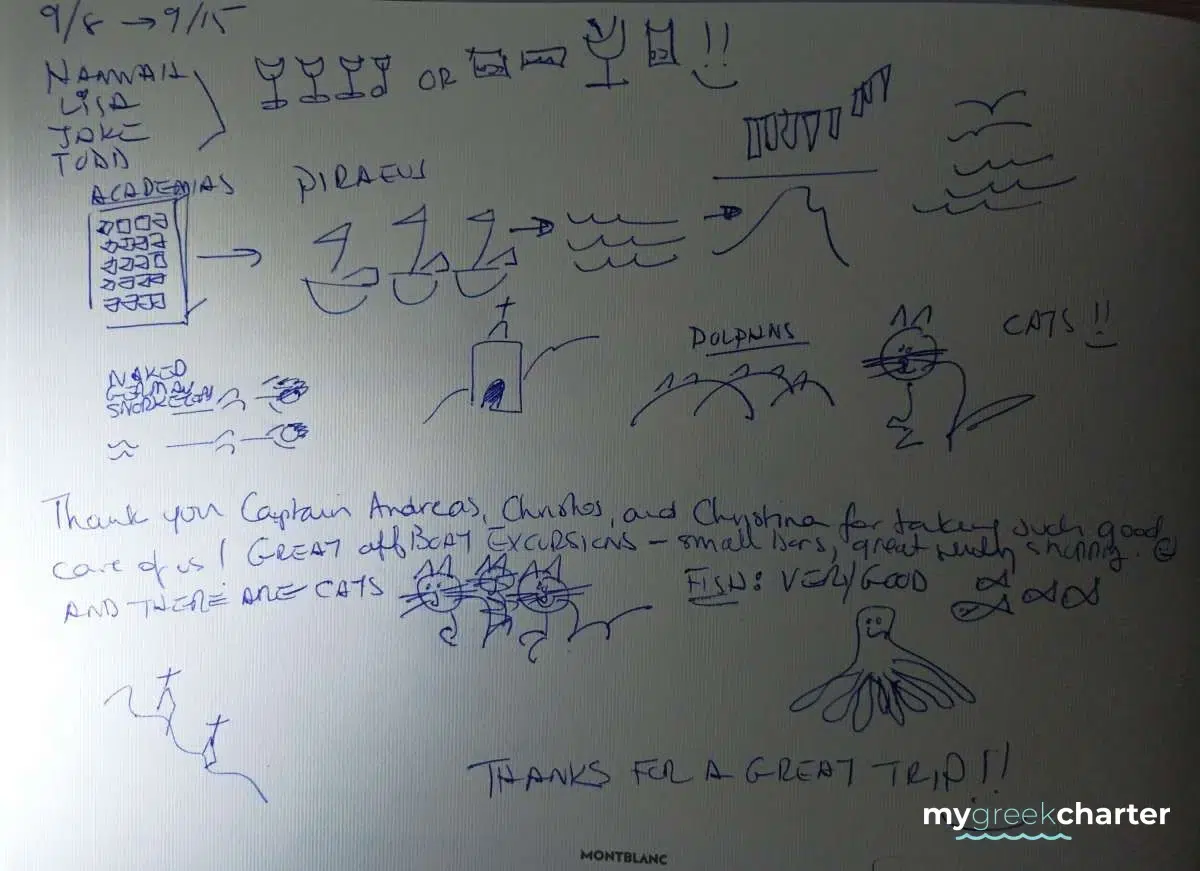 9/8 → 9/15
HANNAH
LISA
JAKE
TODD
OR
!!
ACADEMIAS
PIRAEUS
DOLPHINS
CATS !!
NAKED
GERMAN
Thank you Captain Andreas, Christos, and Christina for taking such good
care of us! GREAT off BOAT EXCURSIONS - small bars, great shopping.
AND THERE ARE CATS
FISH: VERY GOOD
THANKS FOR A GREAT TRIP!!
mygreekcharter
MONTBLANC